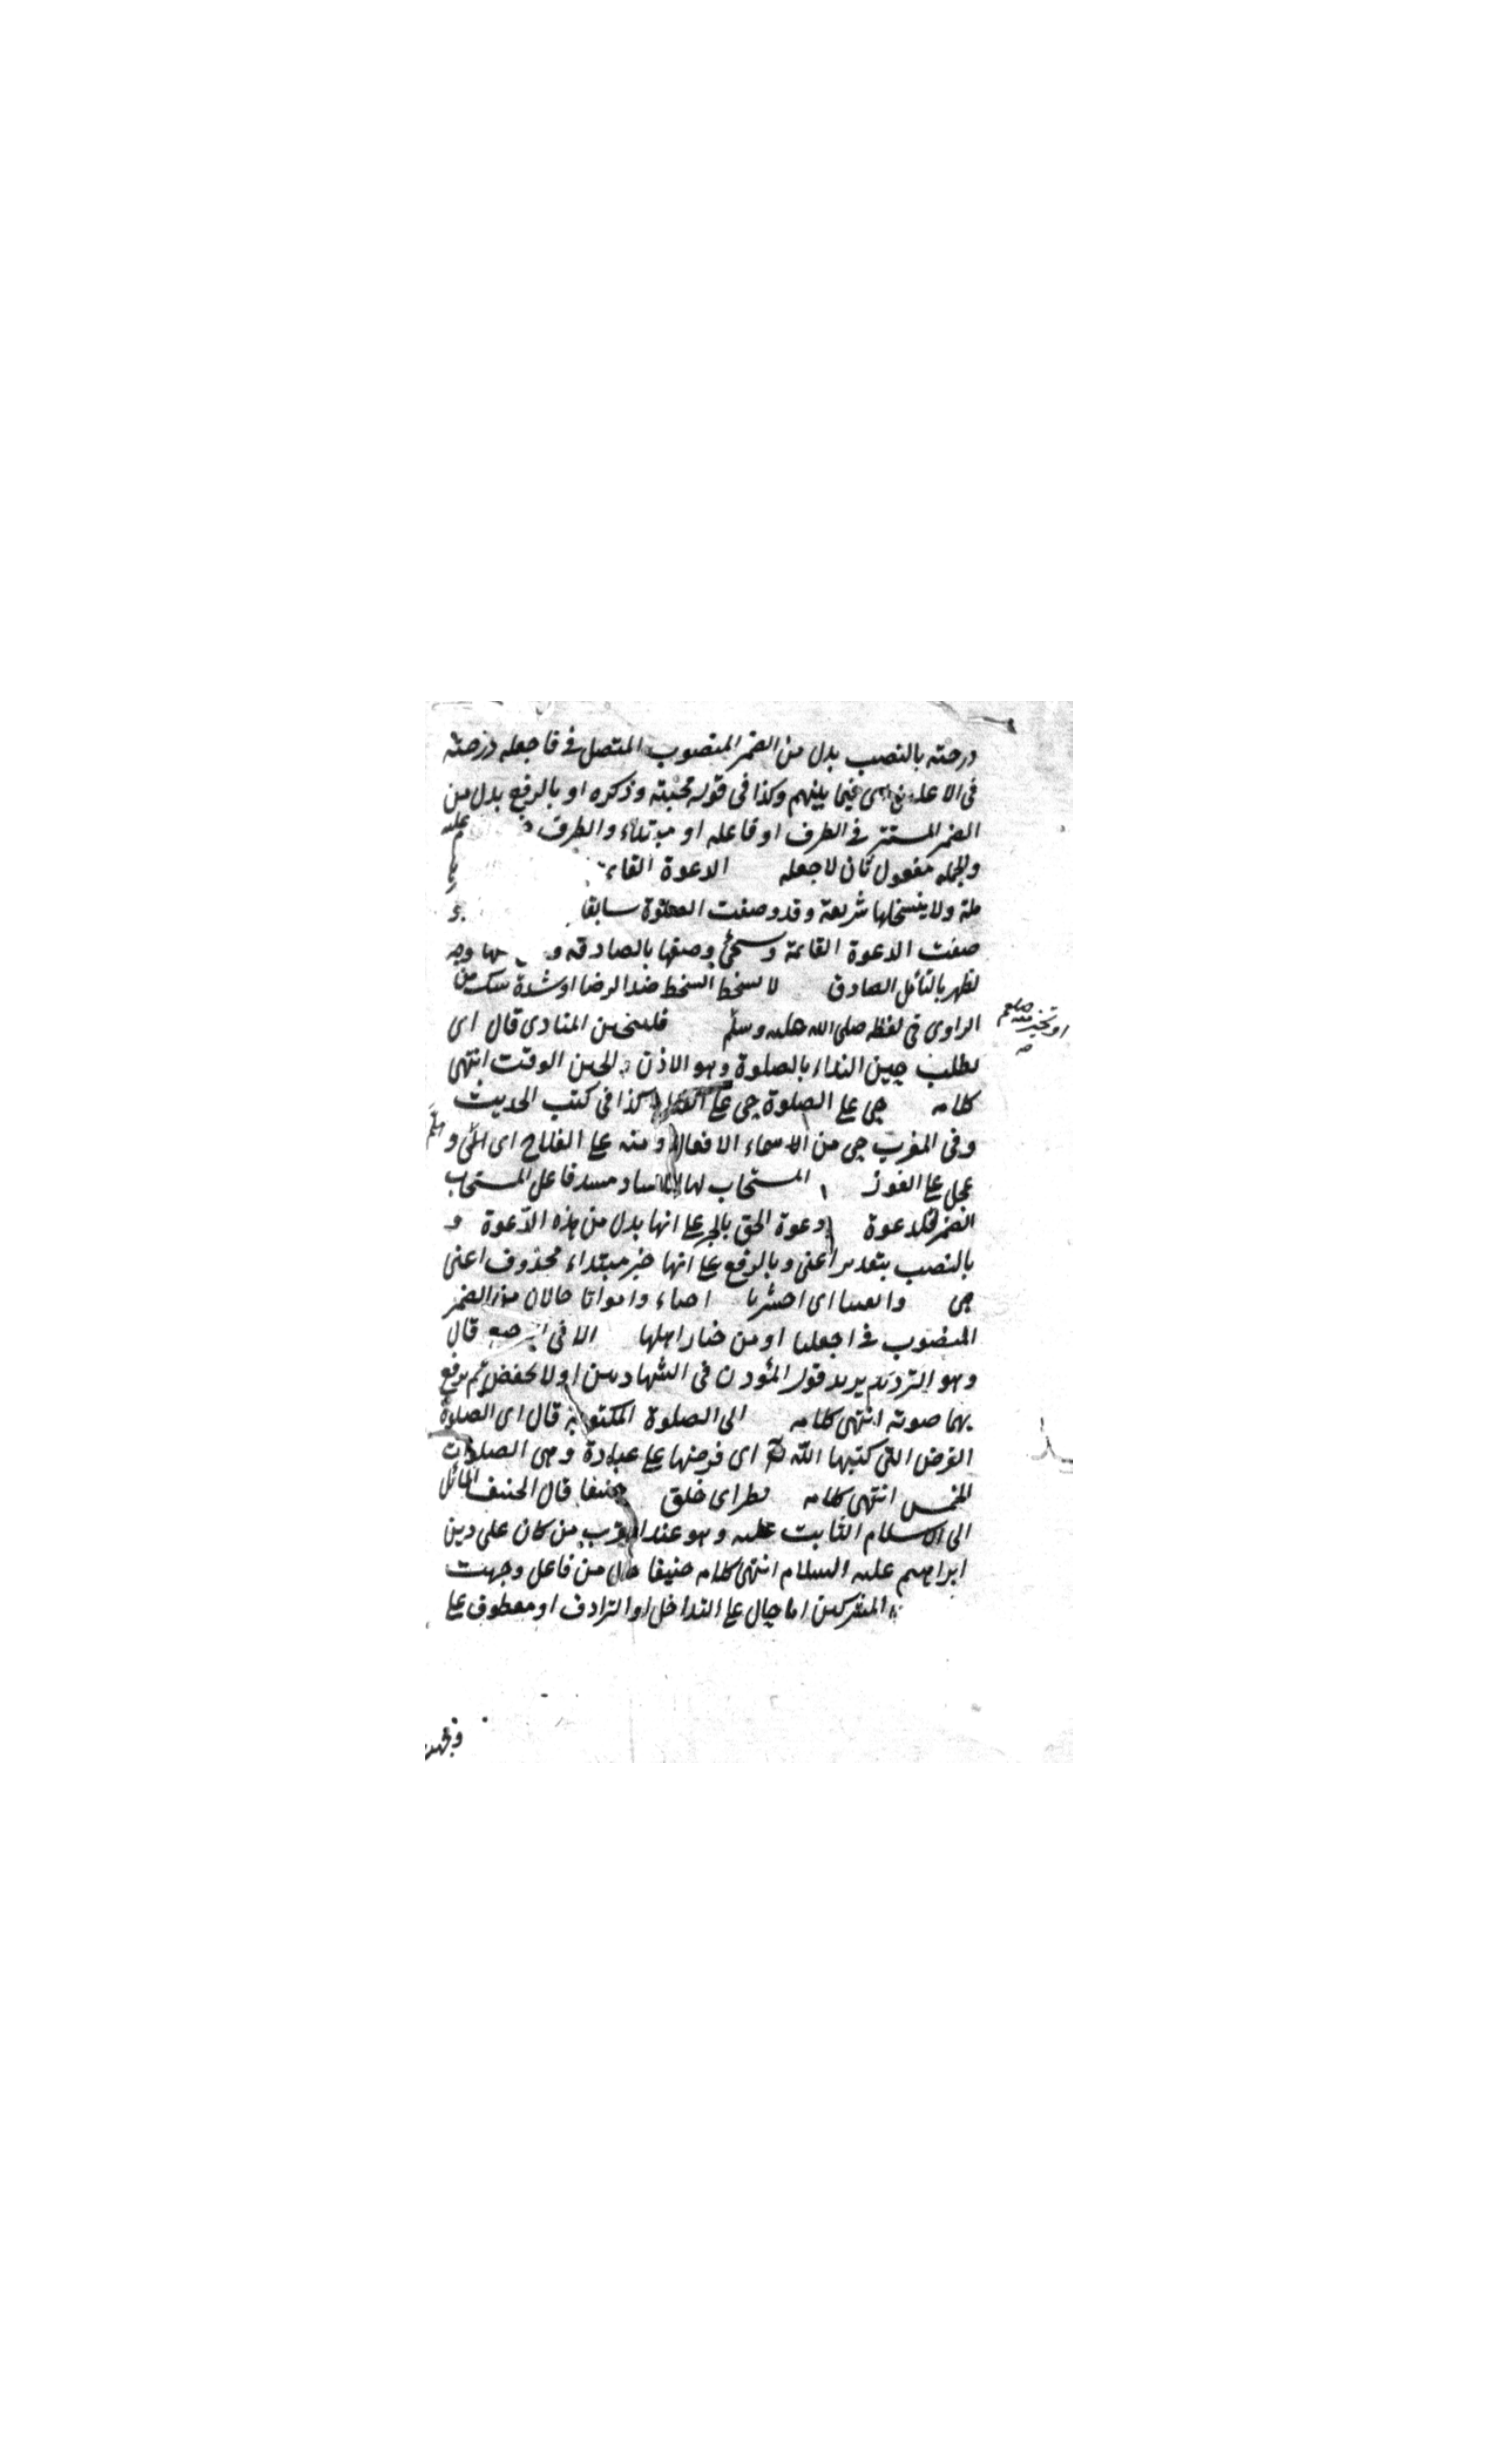 درجته بالنصب بدل من الضمير المنصوب المتصل في فاجعله درجته
في الاعلين اى فيما بينهم وكذا في قوله محبته وذكره او بالرفع بدل من
الضمير المستتر في الظرف او فاعله او مبتداء والظرف
والجمله مفعول ثان لاجعله الدعوة القاء
ملة ولا ينسخها شريعة وقد وصفت الصلوة سابقا
صفت الدعوة القائمة و وصفها بالصادقه
القائل الصادق لا سخط السخط ضد الرضا او شدة شك من
الراوى في لفظه صلى الله عليه وسلم فليتحين المنادى قال اى
يطلب حين النداء بالصلوة وهو الاذن والحين الوقت انتهى
كلامه حى على الصلوة حى على كذا في كتب الحديث
وفي المغرب حى من الاسماء الافعال ومنه على الفلاح اى هلم و
عجل على الفوز المستجاب لها ساد مسد فاعل المستجاب
الضمير للدعوة دعوة الحق بالجر على انها بدل من هذه الدعوة و
بالنصب بتقدير اعنى وبالرفع على انها خبر مبتداء محذوف اعنى
هى وابعثنا اى احشرنا احياء وامواتا حالان من الضمير
المنصوب في اجعلنا او من خيار اهلها الا في قال
وهو الترديد يريد قول المؤذن في الشهادتين اولا بخفض ثم يرفع
بهما صوته انتهى كلامه الى الصلوة المكتوبة قال اى الصلوة
الفرض التى كتبها الله اى فرضها على عباده وهى الصلوات
الخمس انتهى كلامه فطر اى خلق حنيفا قال الحنيف المائل
الى الاسلام الثابت عليه وهو عند العرب من كان على دين
ابراهيم عليه السلام انتهى كلامه حنيفا حال من فاعل وجهت
المشركين اما حال على التداخل او الترادف او معطوف على